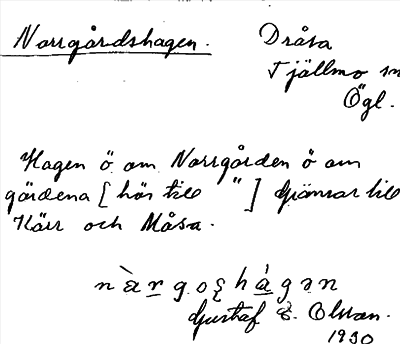 Norrgårdshagen. Dråsa
Tjällmo sn
Ögl.
Hagen ö om Norrgården ö om
gärdena [hör till " ] Gränsar till
Kärr och Måsa.
Gustaf E. Olsson.
1930